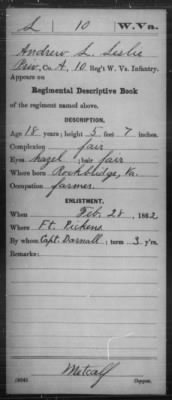 L 10 W.Va.
Andrew L. Leslie
Priv., Co. A, 10 Reg't W. Va. Infantry.
Appears on
Regimental Descriptive Book
of the regiment named above.
DESCRIPTION.
Age 18 years; height 5 feet 7 inches.
Complexion fair
Eyes hazel; hair fair
Where born Rockbridge, Va.
Occupation farmer
ENLISTMENT.
When Feb. 28, 1862
Where Ft. Pickens
By whom Capt. Darnall; term 3 y'rs.
Remarks:
Metcalf
Copyist.